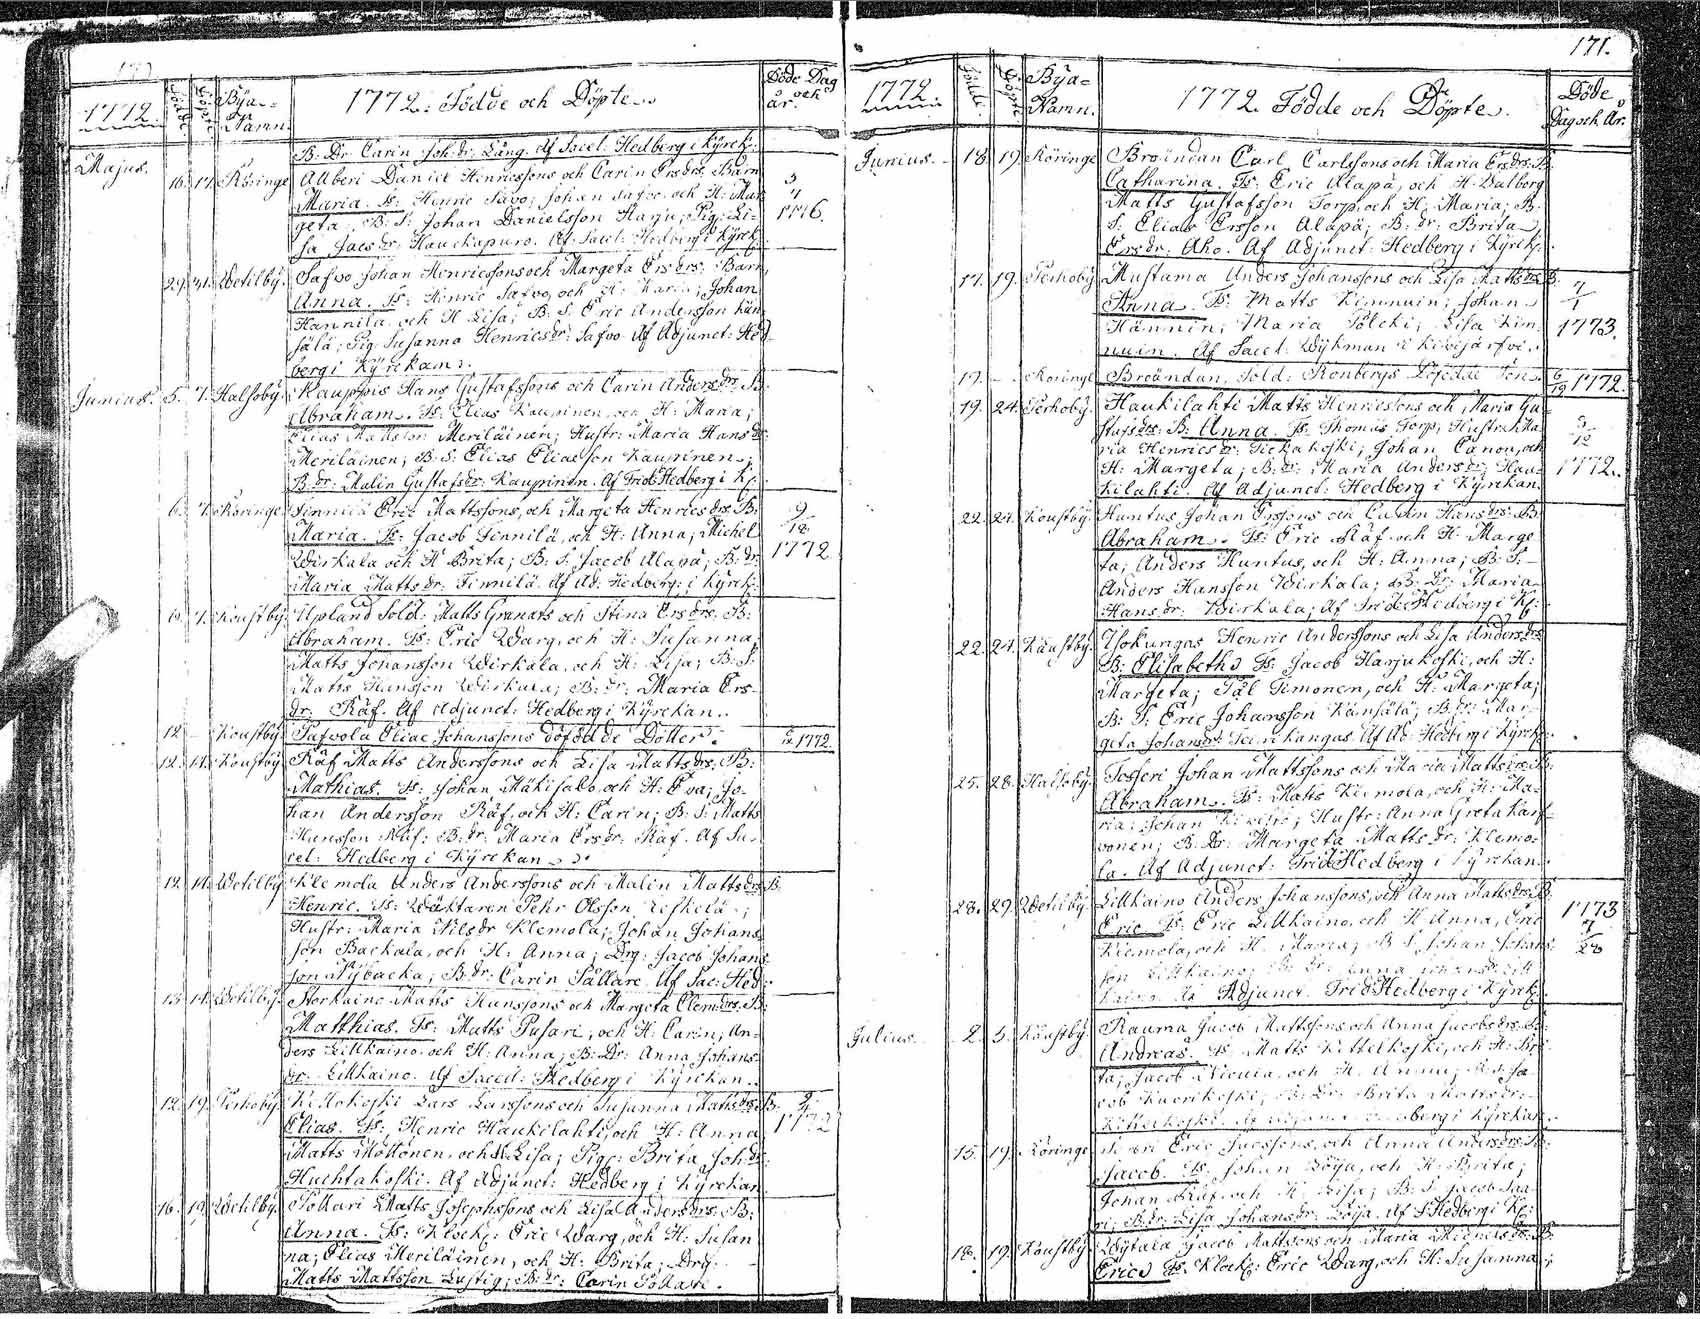 1772.
Födde
Döpte
Bya-
Namn.
1772. Födde och Döpte.
Döde Dag
och
år.
B: Dr. Carin Joh: dr: Lång. Af Sacel: Hedberg i Kyrek:
Majus. 16. 17. Röringe Allberi Daniel Henricssons och Carin Ersdrs. Barn
Maria. Ts: Henric Safvo, Johan Safvo och H: Mar
geta, B: S: Johan Danielsson Harju; Pig: Li-
sa Jacsdr: Hauckapuro. Af Sacel: Hedberg i Kyrek:
3
4
1776.
29. 31. Wetilby. Safvo Johan Henricssons och Margeta Ersdrs: Barn
Anna. Ts: Henric Safvo, och H: Maria; Johan
Hannila och H Lisa; B: S: Eric Andersson Kän
sälä; Pig Susanna Henricsdr: Safvo Af Adjunct: Hed
berg i Kyrekan.
Junius. 5. 7. Halsoby. Kauppis Hans Gustafssons och Carin Andersdrs B:
Abraham. Ts: Elias Kaupinen, och H: Maria;
Elias Mattsson Meriläinen; Hustr: Maria Hansdr
Meriläinen; B: S: Elias Eliasson Kaupinen;
B: dr: Malin Gustafsdr: Kaupinen. Af Frid: Hedberg i K:
6. 7. Röringe. Finnilä Eric Mattssons, och Margeta Henricsdrs. B:
Maria. Ts: Jacob Finnilä, och H: Anna; Michel
Wirkala och H Brita; B: S. Jacob Alapä; B: dr:
Maria Mattsdr: Finnilä Af Ad: Hedberg: i Kyrek:
9
18
1772
6. 7. Koustby. Upland Sold: Matts Granats och Stina Ersdrs. B:
Abraham. Ts: Eric Warg, och H: Susanna;
Matts Johansson Wirkala, och H: Lisa; B: S:
Matts Hansson Wirkala; B: dr: Maria Ers-
dr: Räf. Af Adjunct: Hedberg i Kyrekan.
12. – Koustby Pafvola Elias Johanssons döfödde Dotter.
1772
12. 14. Koustby Räf Matts Anderssons och Lisa Mattsdrs: B:
Mathias. Ts: Johan Mäkisalo, och H: Eva; Jo-
han Andersson Räf, och H: Carin; B: S: Matts
Hansson Räf: B: dr: Maria Ersdr: Räf. Af Sa-
cel: Hedberg i Kyrekan.
12. 14. Wetilby. Klemola Anders Anderssons och Malin Mattsdrs B.
Henric. Ts: Wäktaren Pehr Olsson
Hustr: Maria Nilsdr Klemola; Johan Johans
son Backala, och H: Anna; Drg: Jacob Johans
son Nybacka; B: dr: Carin Pällare. Af Sac: Hed:
13. 14. Wetilby. Storkaino Matts Hanssons och Margeta Clemdrs. B:
Matthias. Ts: Matts Pusari, och H: Carin; An-
ders Lillkaino och H: Anna; B: Dr: Anna Johans
dr. Lillkaino. Af Saced: Hedberg i Kyrekan.
12. 19. Perhoby. Kellokoski Lars Larssons och Susanna Mattsdrs B.
Elias. Ts: Henric Haukilahti, och H: Anna
Matts Möttönen, och H Lisa; Pige: Brita Joh: dr:
Huchtakoski. Af Adjunct: Hedberg i Kyrekan
1772
16. 19. Wetilby. Pollari Matts Josephssons och Lisa Andersdrs. B:
Anna. Ts: Klock: Eric Warg, och H: Susan
na; Elias Meriläinen, och H: Brita; Drg.
Matts Mattsson Lustig; B: dr: Carin Pollare.
171.
1772
Födde
Döpte
Bya-
Namn.
1772. Födde och Döpte.
Döde
Dag och År.
Junius. 18. 19. Röringe Broändan Carl Carlssons och Maria Ersdrs. B:
Catharina. Ts: Eric Alapä, och H: Dalborg
Matts Gustafsson Torp, och H: Maria; B:
S: Elias Ersson Alapä; B: dr: Brita
Ersdr. Aho. Af Adjunct: Hedberg i Kyrek:
17. 19. Perhoby. Mustama Anders Johanssons och Lisa Mattsdrs B.
Anna. Ts: Matts Kinnuin; Johan
Hännin; Maria Pölcki; Lisa Kin
nuin. Af Sacel: Wykman i Kivijärfvi.
7
1
1773.
19. – Röringe Broändan, Sold: Ronbergs Döfödde Son
6
19 1772.
19. 24. Perhoby. Haukilahti Matts Henricssons och Maria Gu-
stafsdrs. B: Anna. Ts: Thomas Torp; Hustr: Ma
ria Henricsdr: Tickakoski; Johan Canon, och
H: Margeta; B: dr: Maria Andersdr: Hau-
kilahti. Af Adjunct: Hedberg i Kyrekan.
12
1772.
22. 24. Koustby. Huntus Johan Erssons och Carin Hansdrs: B:
Abraham. Ts: Eric Räf och H: Marge
ta; Anders Huntus, och H: Anna; B: S:
Anders Hansson Wirkala; B: Dr: Maria
Hansdr: Wirkala; Af Frid: Hedberg i K:
22. 24. Kaustby. Isokungas Henric Anderssons och Lisa Andersdrs
B: Elisabeth Ts: Jacob Harjukoski, och H:
Margeta; Pål Timonen, och H: Margeta;
B: S: Eric Johansson Känsälä; B: dr: Mar-
geta Johansdr: Af Ad: Hedberg i Kyrek:
25. 28. Halsoby. Tofferi Johan Mattssons och Maria Mattsdrs B:
Abraham. Ts: Matts Klemola, och H: Ma-
ria; Johan Hustr: Anna Greta Karf-
vonen; B: Dr: Margeta Mattsdr: Klemo-
la. Af Adjunct: Frid: Hedberg i Kyrekan.
28. 29. Wetilby. Lillkaino Anders Johanssons, och Anna Mattsdrs B:
Eric Ts: Eric Lillkaino, och H Anna, Eric
Klemola, och H. Maria; B S. Johan Johans
son Lillkaino; B: Dr: Anna Johansdr Lill
kaino. Af Adjunct. Frid: Hedberg i Kyrek:
1773
7
28
Julius. 2. 5. Koustby Rauma Jacob Mattssons och Anna Jacobsdrs. B:
Andreas. Ts. Matts Kellokoski, och H: Bri
ta; Jacob och H: Anna; B: S. Ja
cob B: Dr: Brita Mattsdr:
Hedberg i Kyrekan.
15. 19. Röringe Eric Jacssons, och Anna Andersdrs B:
Jacob. Ts. Johan Böija, och H: Brita;
Johan Räf och H. Lisa; B: S. Jacob
B: dr: Lisa Johansdr: Böija. Af F: Hedberg i K:
18. 19. Koustby Wytala Jacob Mattssons och Maria B:
Eric Ts. Klock: Eric Warg, och H: Susanna;